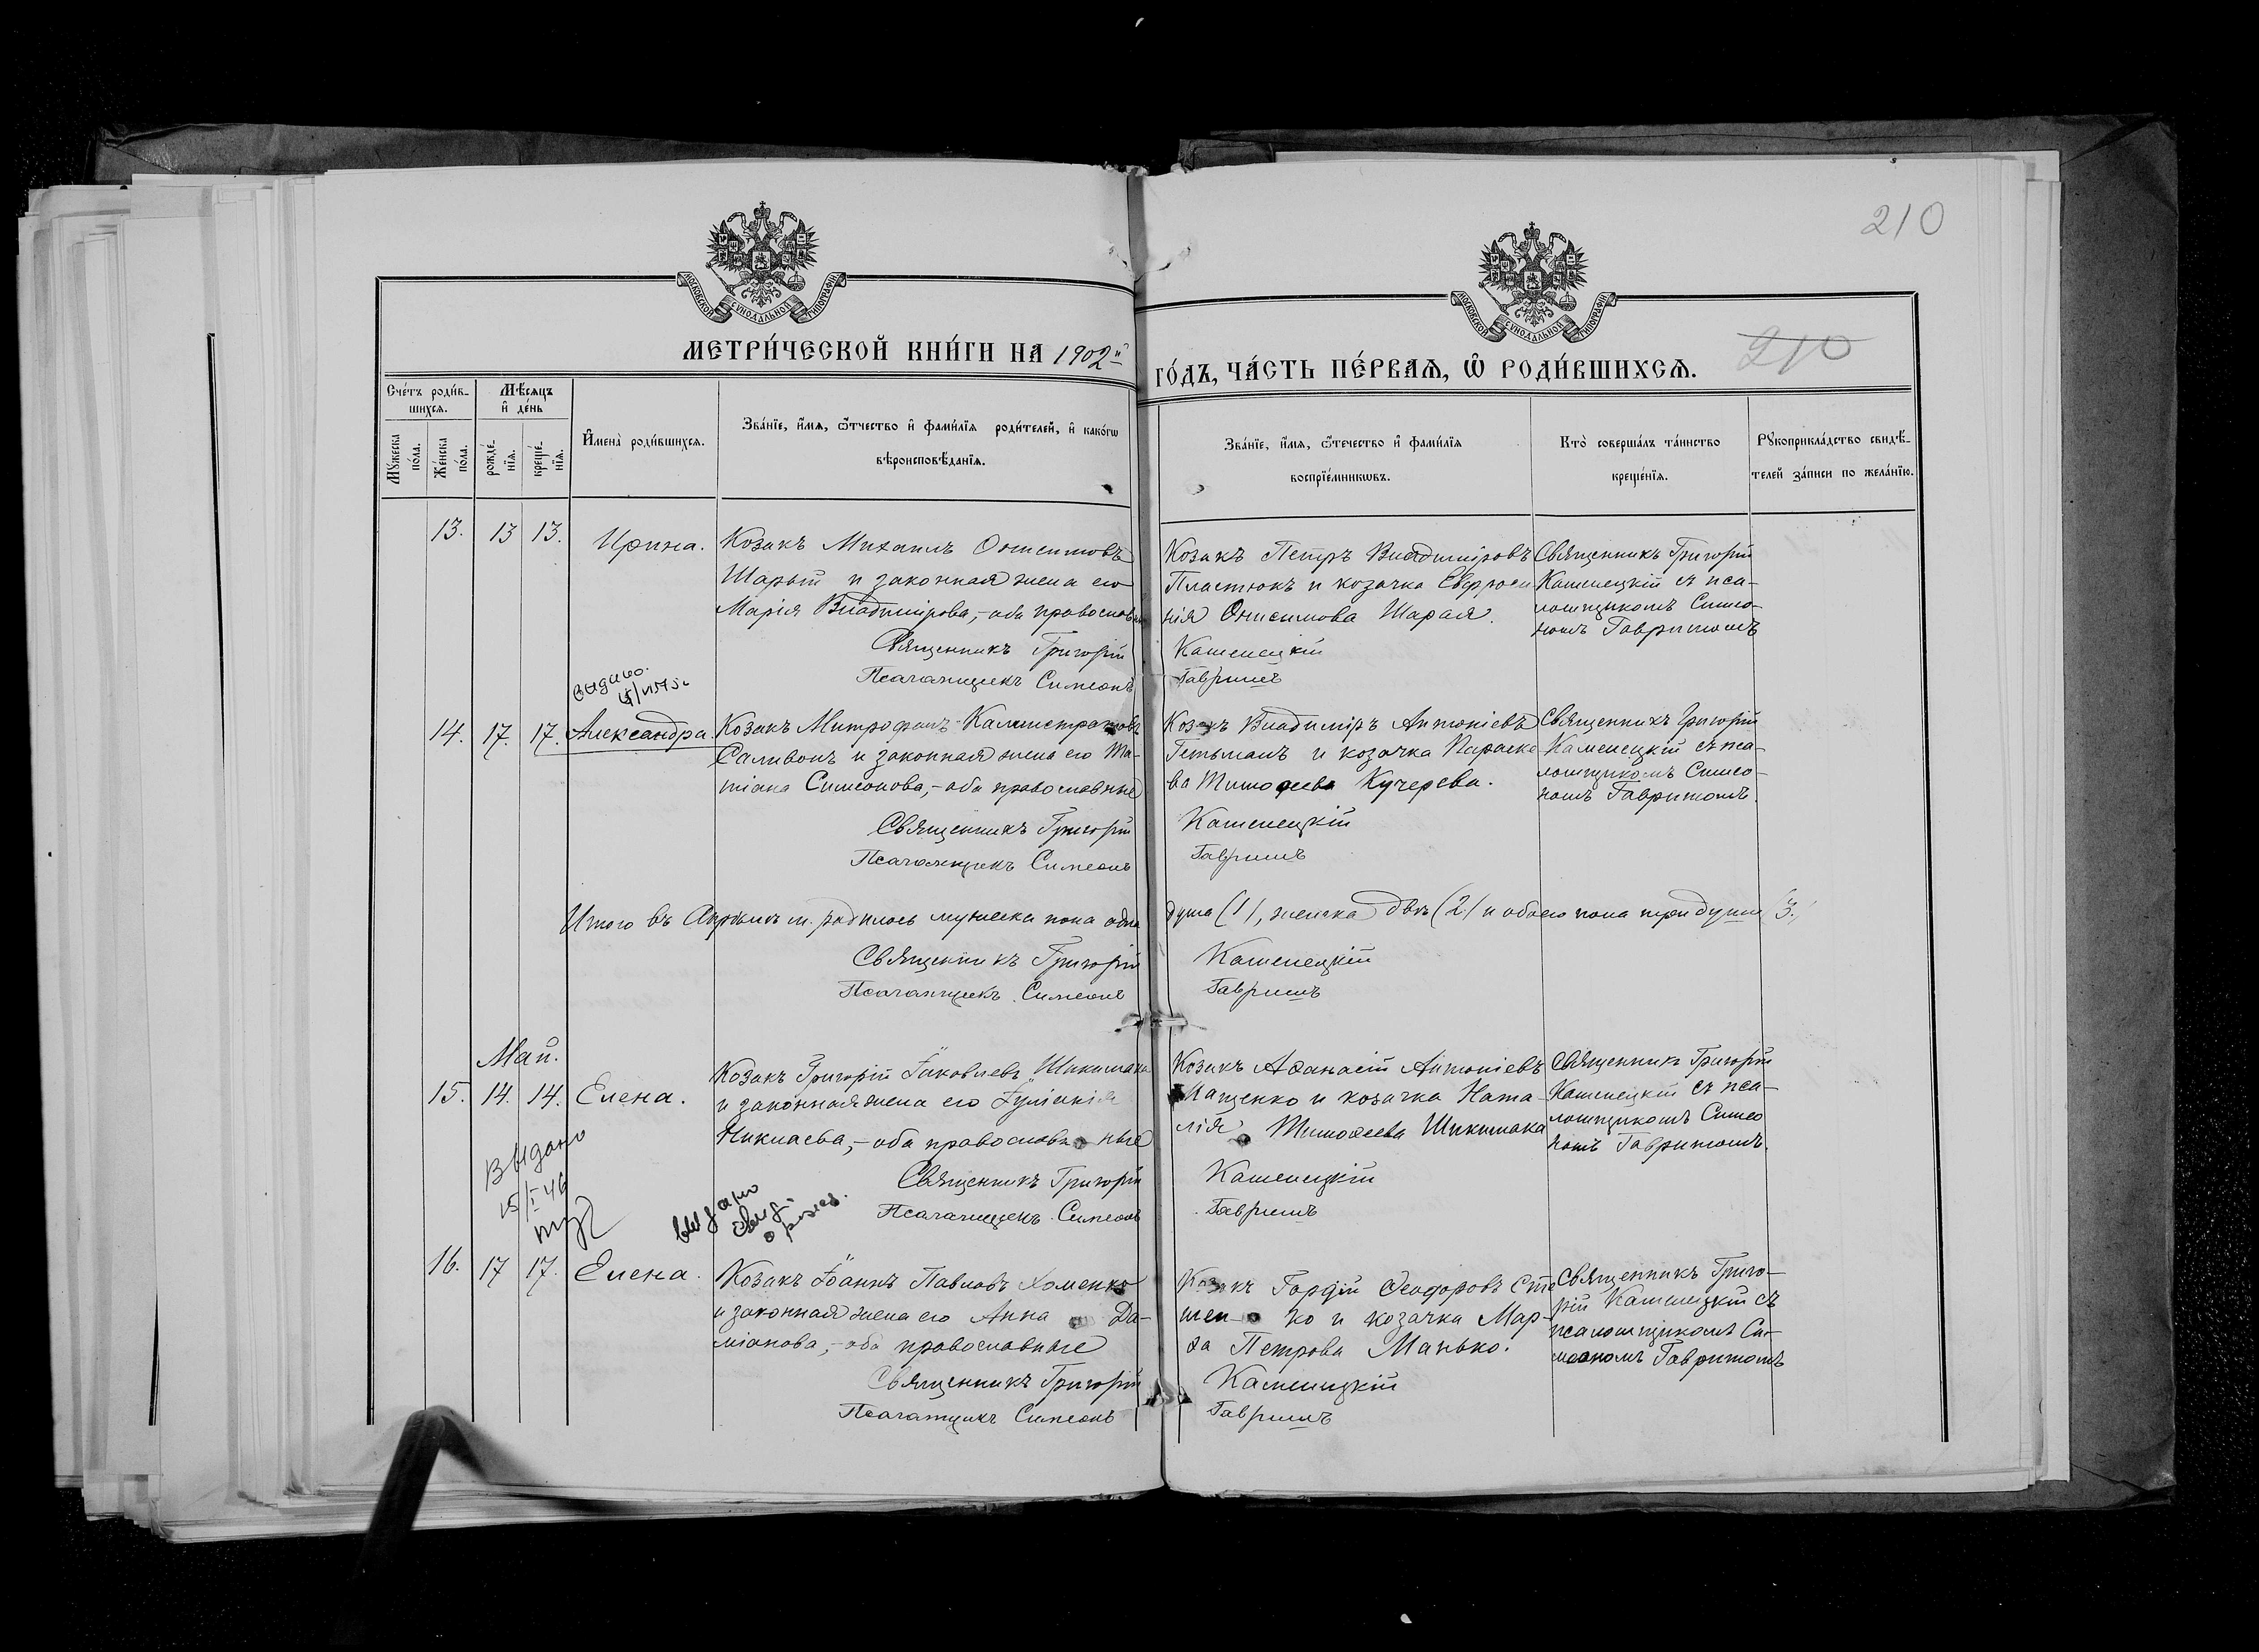 210
МОСКОВСКОЙ СУНОДАЛЬНОЙ ТИПОГРАФІИ
МОСКОВСКОЙ СУНОДАЛЬНОЙ ТИПОГРАФІИ
МЕТРИ́ЧЕСКОЙ КНИ́ГИ НА 1902й
ГО́ДЪ, ЧА́СТЬ ПЕ́РВАѦ, Ѡ҆ РОДИ́ВШИХСѦ.
210
Сче́тъ роди́в-
шихсѧ.
Мѣ́сѧцъ
и҆ де́нь
Мꙋжеска
по́ла.
Же́нска
по́ла.
рожде́-
нїѧ.
креще́-
нїѧ.
И҆мена̀ роди́вшихсѧ.
Зва́нїе, и҆́мѧ, ѻ҆́тчество и҆ фами́лїѧ роди́телей, и҆ како́гѡ
вѣроисповѣ́данїѧ.
Зва́нїе, и҆́мѧ, ѻ҆́течество и҆ фами́лїѧ
воспрїе́мникѡвъ.
Кто̀ соверша́лъ та́инство
креще́нїѧ.
Рꙋкоприкла́дство свидѣ́-
телей за́писи по жела́нїю.
13. 13 13. Ирина.
Козакъ Михаилъ Онисимовъ
Шарый и законная жена его
Марія Владимірова,- оба православн
Священникъ Григорій
Псаломщикъ Симеонъ
Козакъ Петръ Владиміровъ
Пластюкъ и козачка Евфроси
нія Онисимова Шарая.
Каменецкій
Гавришъ
Священникъ Григорій
Каменецкій съ пса-
ломщикомъ Симео-
номъ Гавришомъ
Выдано
14. 17. 17. Александра.
Козакъ Митрофанъ Калистратовъ
Саливонъ и законная жена его Та-
тіана Симеонова,- оба православные
Священникъ Григорій
Псаломщикъ Симеонъ
Козакъ Владиміръ Антоніевъ
Гетьманъ и козачка Параске
ва Тимофеева Кучерева.
Каменецкій
Гавришъ
Священникъ Григорій
Каменецкій съ пса-
ломщикомъ Симео-
номъ Гавришомъ.
Итого въ Апрѣлѣ м. родилось мужеска пола одна душа (1), женска двѣ (2) и обоего пола три души (3.)
Священникъ Григорій Каменецкій
Псаломщикъ Симеонъ Гавришъ
Май.
15. 14. 14. Елена.
Козакъ Григорій Іаковлевъ Шикимака
и законная жена его Іуліанія
Николаева,- оба православные
Священникъ Григорій
Псаломщикъ Симеонъ
Козакъ Афанасій Антоніевъ
Мащенко и козачка Ната-
лія Тимофеева Шикимака
Каменецкій
Гавришъ
Священникъ Григорій
Каменецкій съ пса-
ломщикомъ Симео
номъ Гавришомъ.
Выдано
15/I 46
выдано
свид.
о
16. 17 17. Елена.
Козакъ Іоаннъ Павловъ Хоменко
и законная жена его Анна Да-
міанова,- оба православные
Священникъ Григорій
Псаломщикъ Симеонъ
Козакъ Гордій Феодоровъ Сте
шен-ко и козачка Мар-
фа Петрова Манько.
Каменецкій
Гавришъ
Священникъ Григо-
рій Каменецкій съ
псаломщикомъ Си-
меономъ Гавришомъ